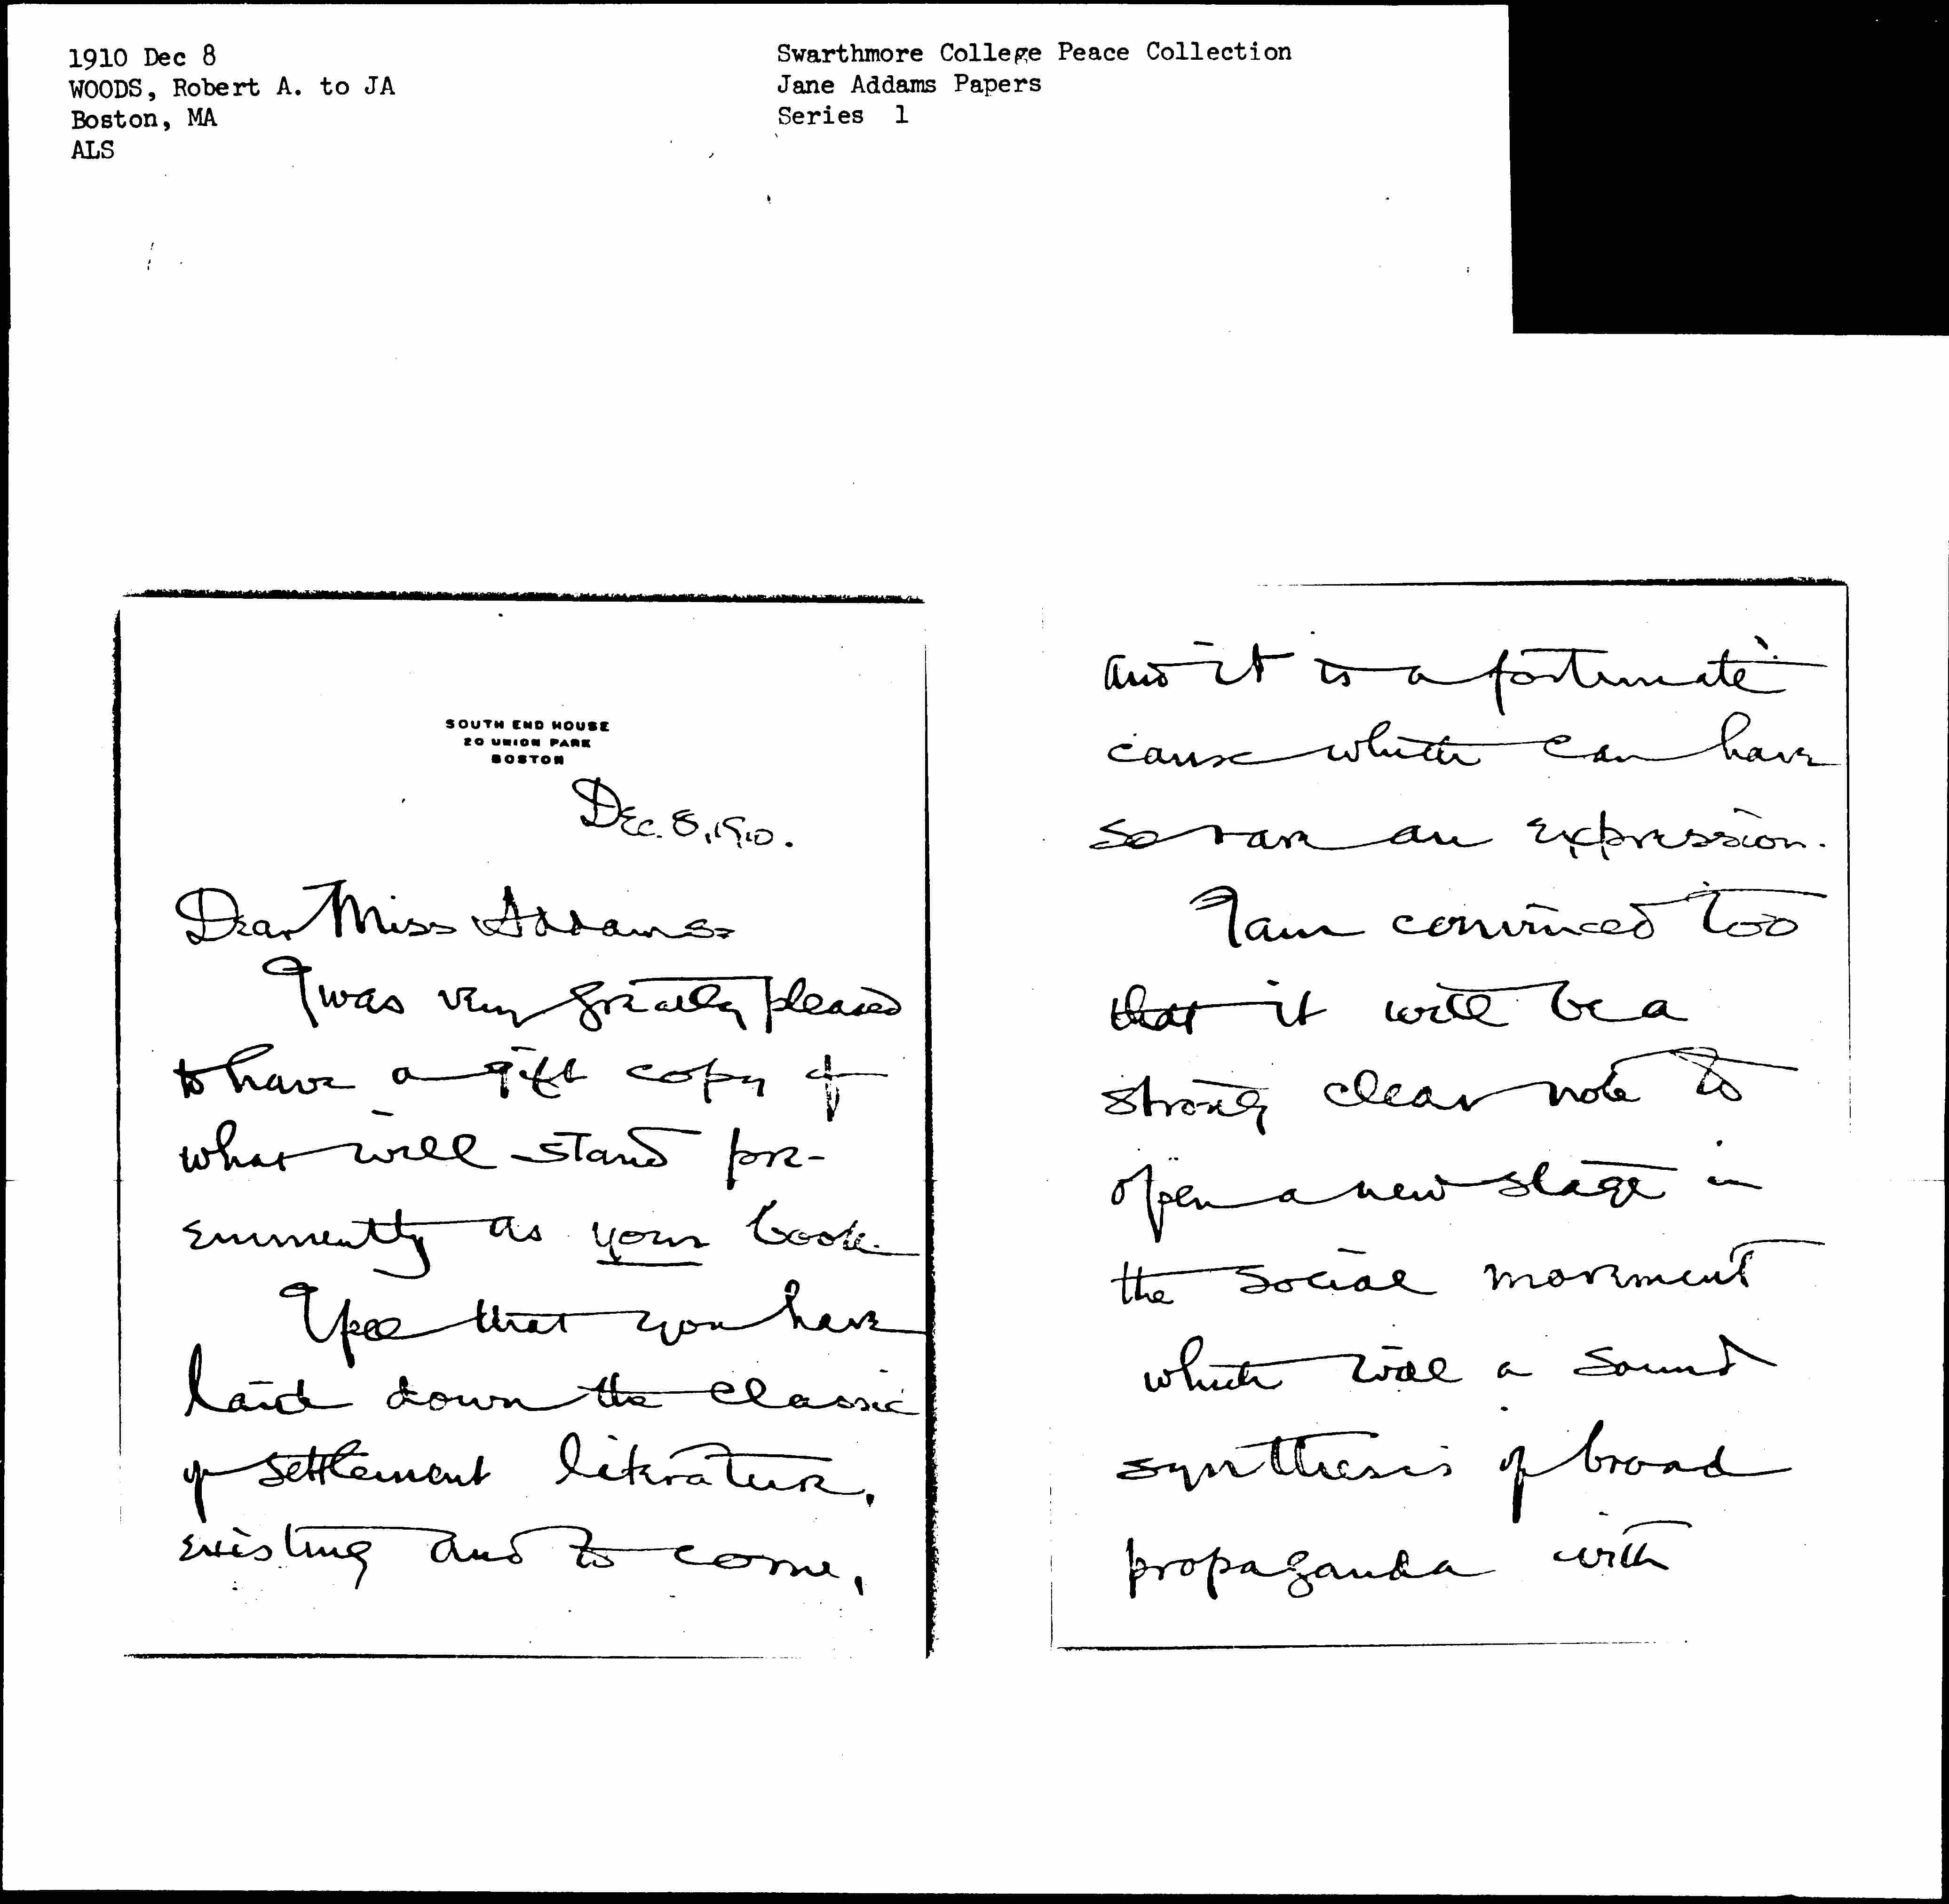 1910 Dec 8
WOODS, Robert A. to JA
Boston, MA
ALS
Swarthmore College Peace Collection
Jane Addams Papers
Series 1
SOUTH END HOUSE
20 UNION PARK
BOSTON
Dec. 8, 1910.
Dear Miss Addams:
I was very greatly pleased
to have a gift copy of
what will stand pre-
eminently as your book.
I feel that you have
laid down the classic
of settlement literature,
existing and to come,
and it is a fortunate
cause which can have
so rare an expression.
I am convinced too
that it will be a
strong clear note to
open a new stage in
the social movement
which will a sound
synthesis of broad
propaganda with